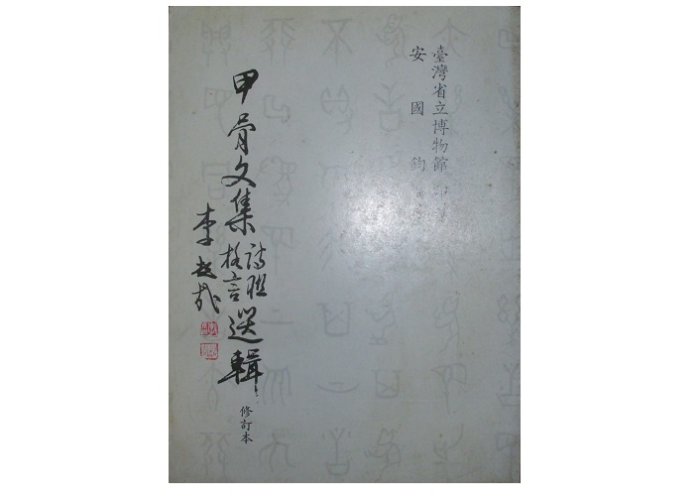 臺灣省立博物館印行
安國鈞
甲骨文集詩聯格言選輯
修訂本
李超哉